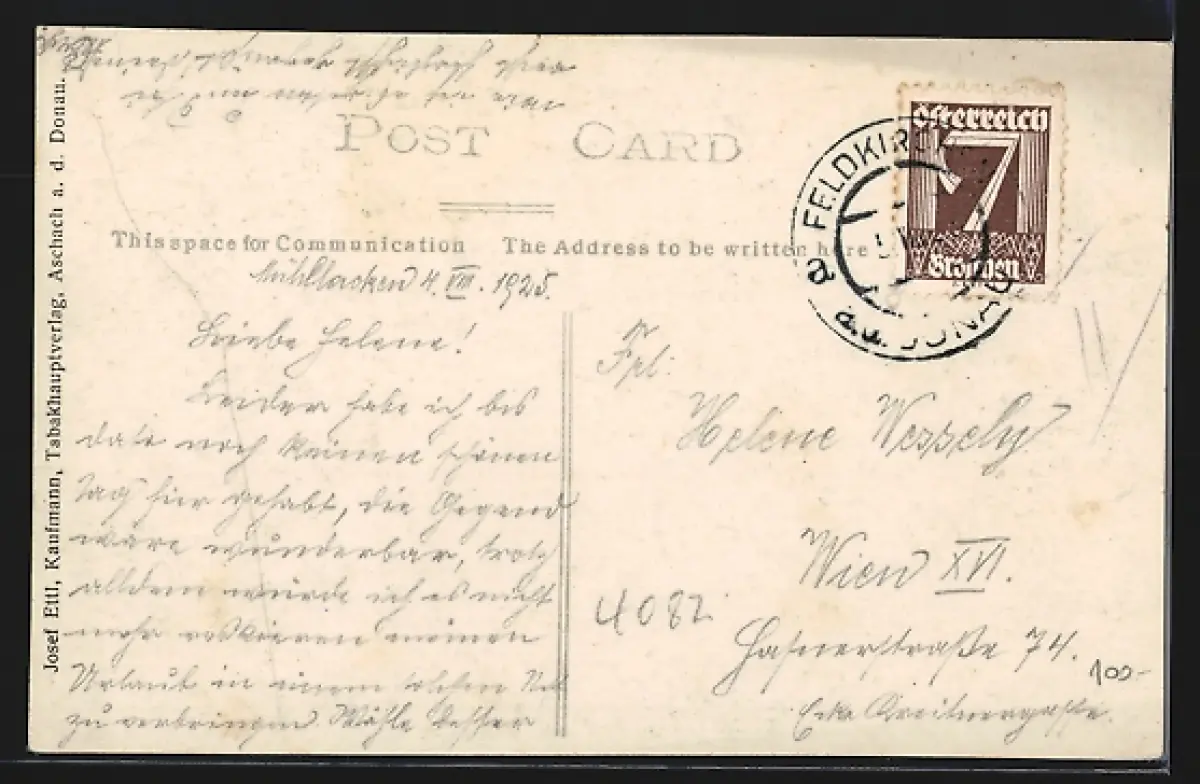 POST CARD
This space for Communication
The Address to be written here
Österreich
7
Groschen
FELDKIRCHEN
a
a.d. DONAU
Josef Ettl, Kaufmann, Tabakhauptverlag, Aschach a. d. Donau.
Mühllacken 4. VIII. 1925.
Liebe Helene!
Leider habe ich bis
dato noch keinen schönen
Tag hier gehabt, die Gegend
wäre wunderbar, trotz
alldem würde ich es nicht
mehr riskieren meinen
Urlaub in einem solchen
zu verbringen. Wähle besser
Frl.
Helene Wessely
Wien XVI.
Hasnerstraße 74.
Ecke Kreitnergasse.
4082
100-